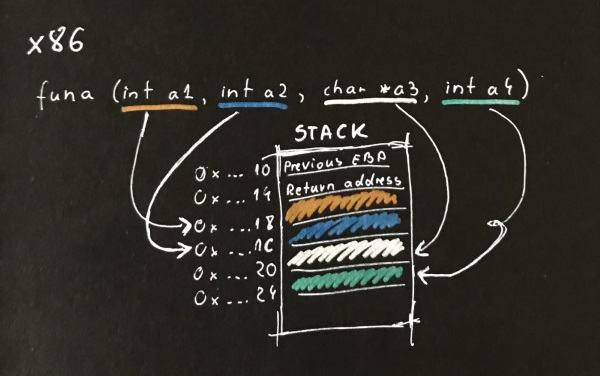 x86
funa (int a1, int a2, char *a3, int a4)
STACK
0x ... 10 Previous EBP
0x ... 14 Return address
0x ... 18
0x ... 1C
0x ... 20
0x ... 24